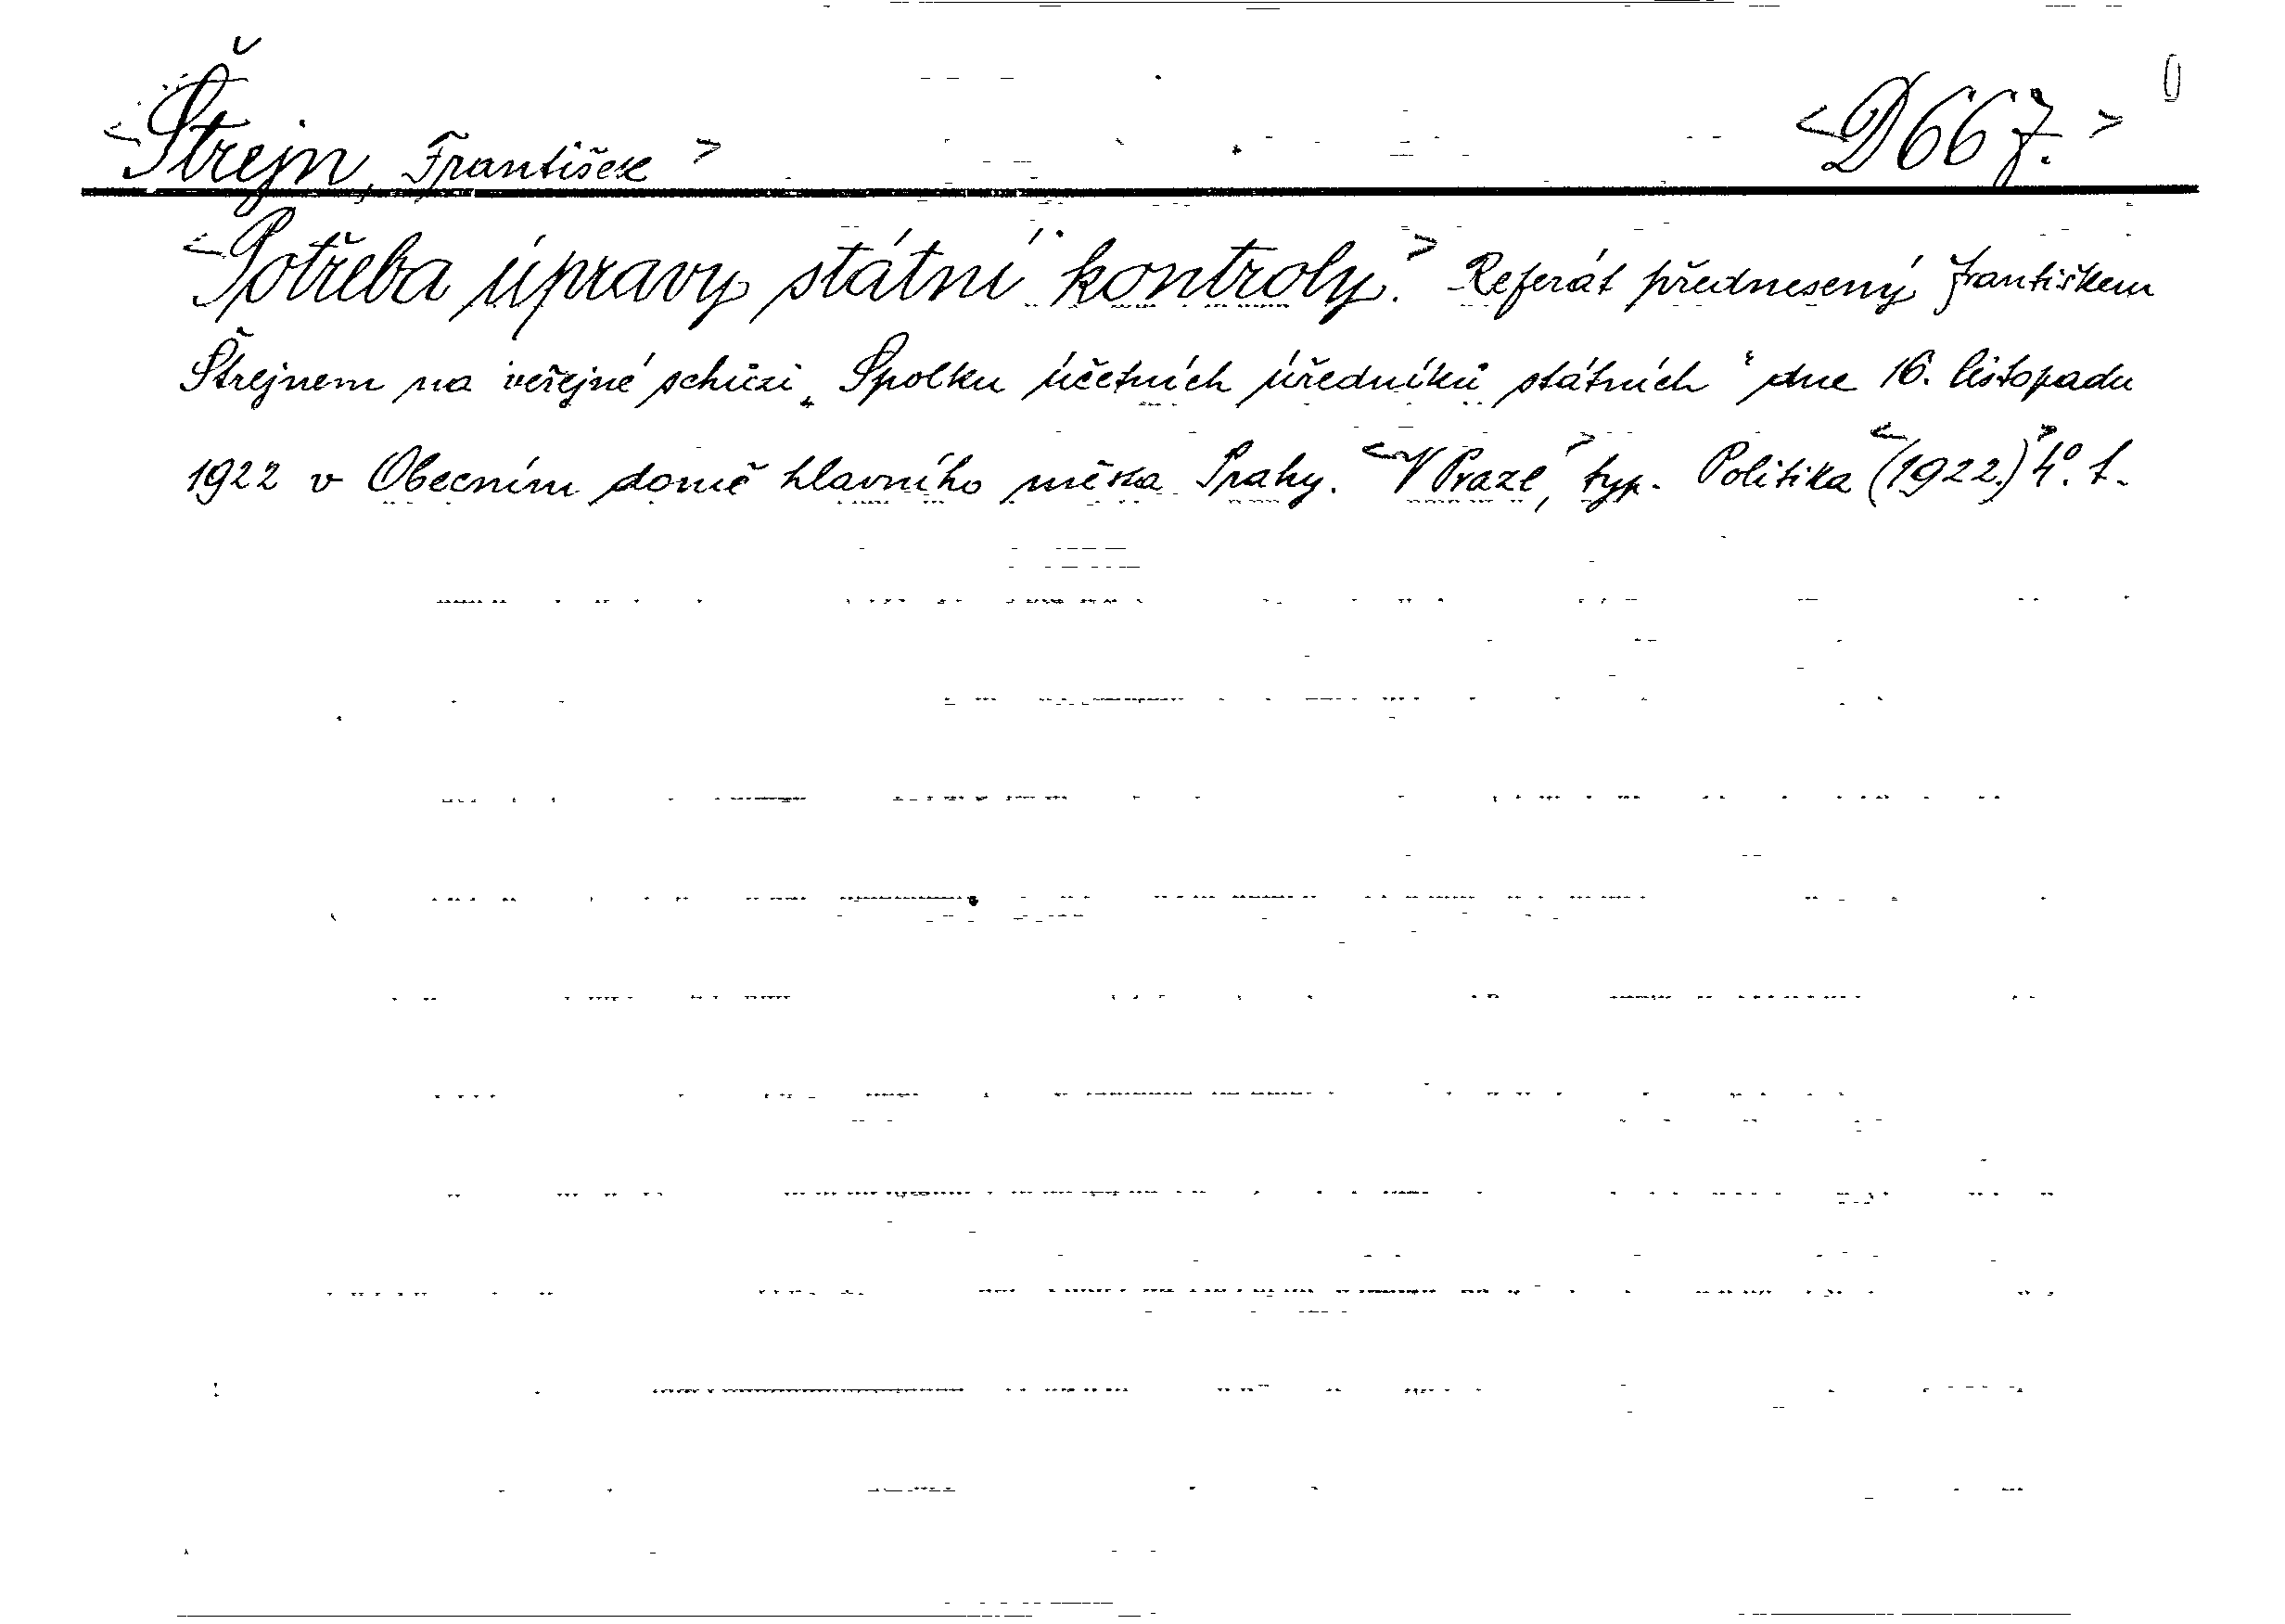 <Štrejn, František> <D 667.>
<Potřeba úpravy státní kontroly.> Referát přednesený Františkem
Štrejnem na veřejné schůzi „Spolku účetních úředníků státních“ dne 16. listopadu
1922 v Obecním domě hlavního města Prahy. <V Praze>, typ. Politika <(1922.)> 4°. 1.